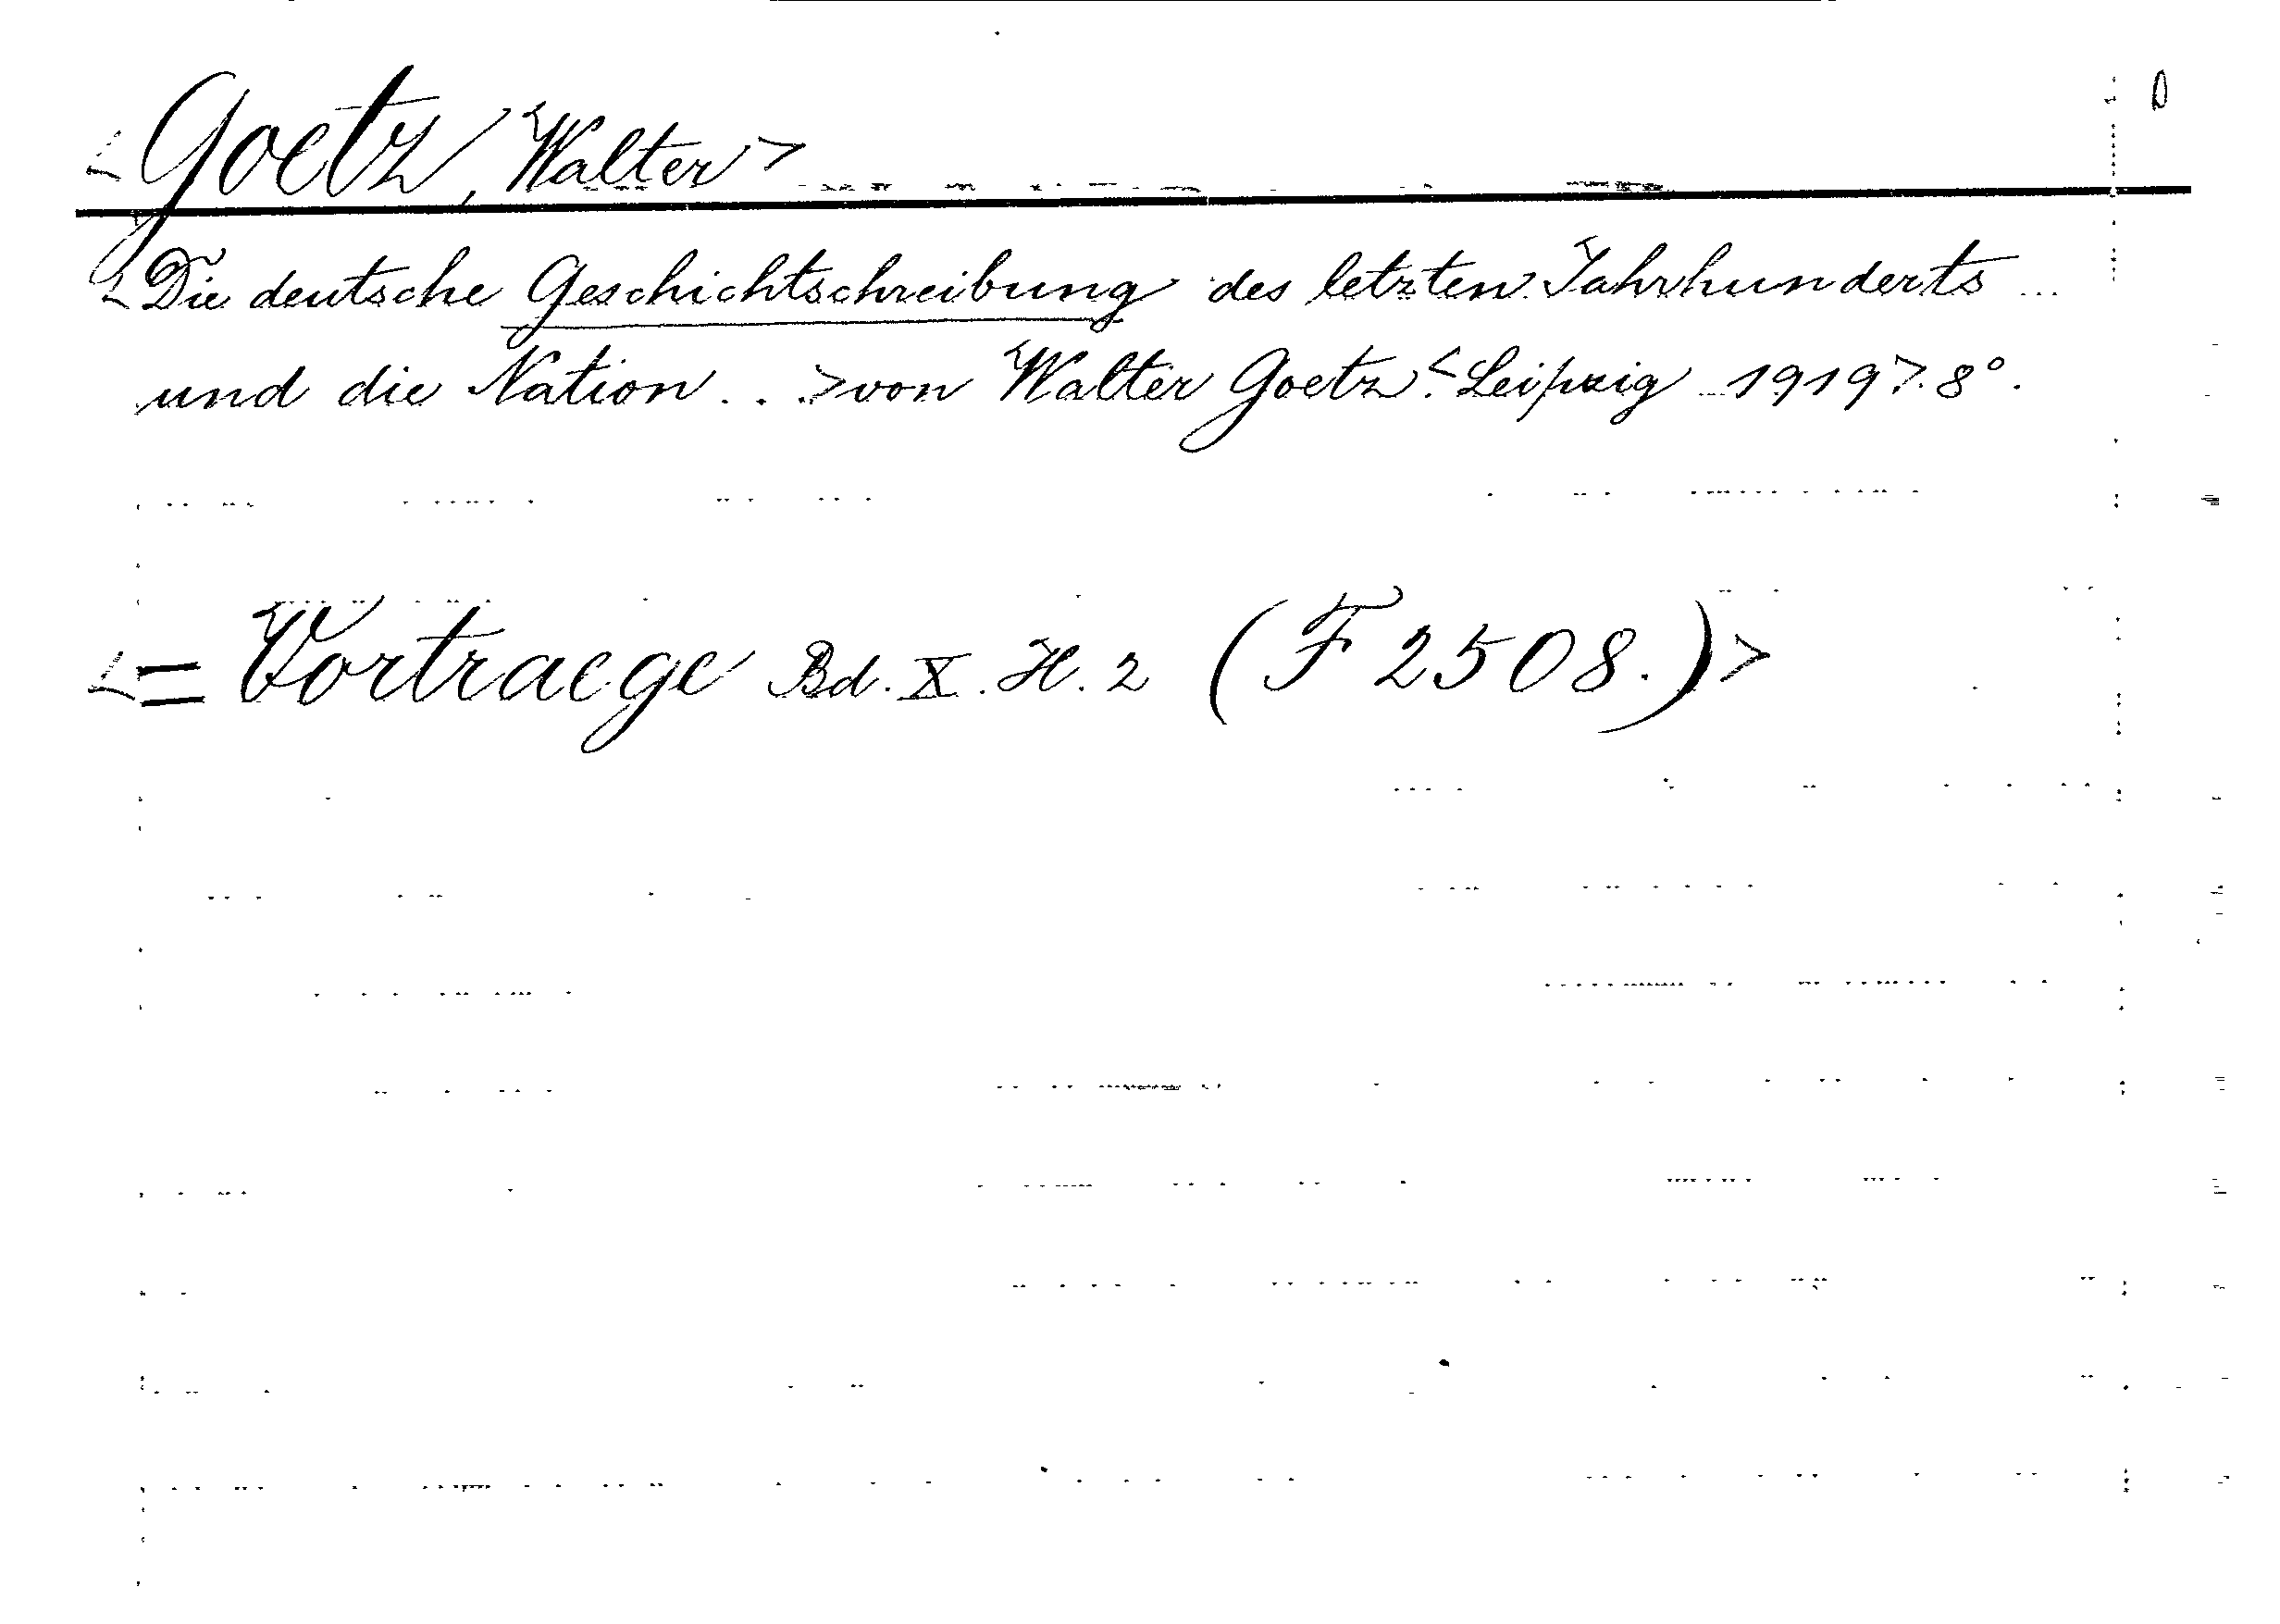 <Goetz, Walter>
<Die deutsche Geschichtschreibung des letzten Jahrhunderts ...
und die Nation . . > von Walter Goetz. <Leipzig 1919>. 8°.
<= Vortraege Bd. X. H. 2 (F 2508.)>